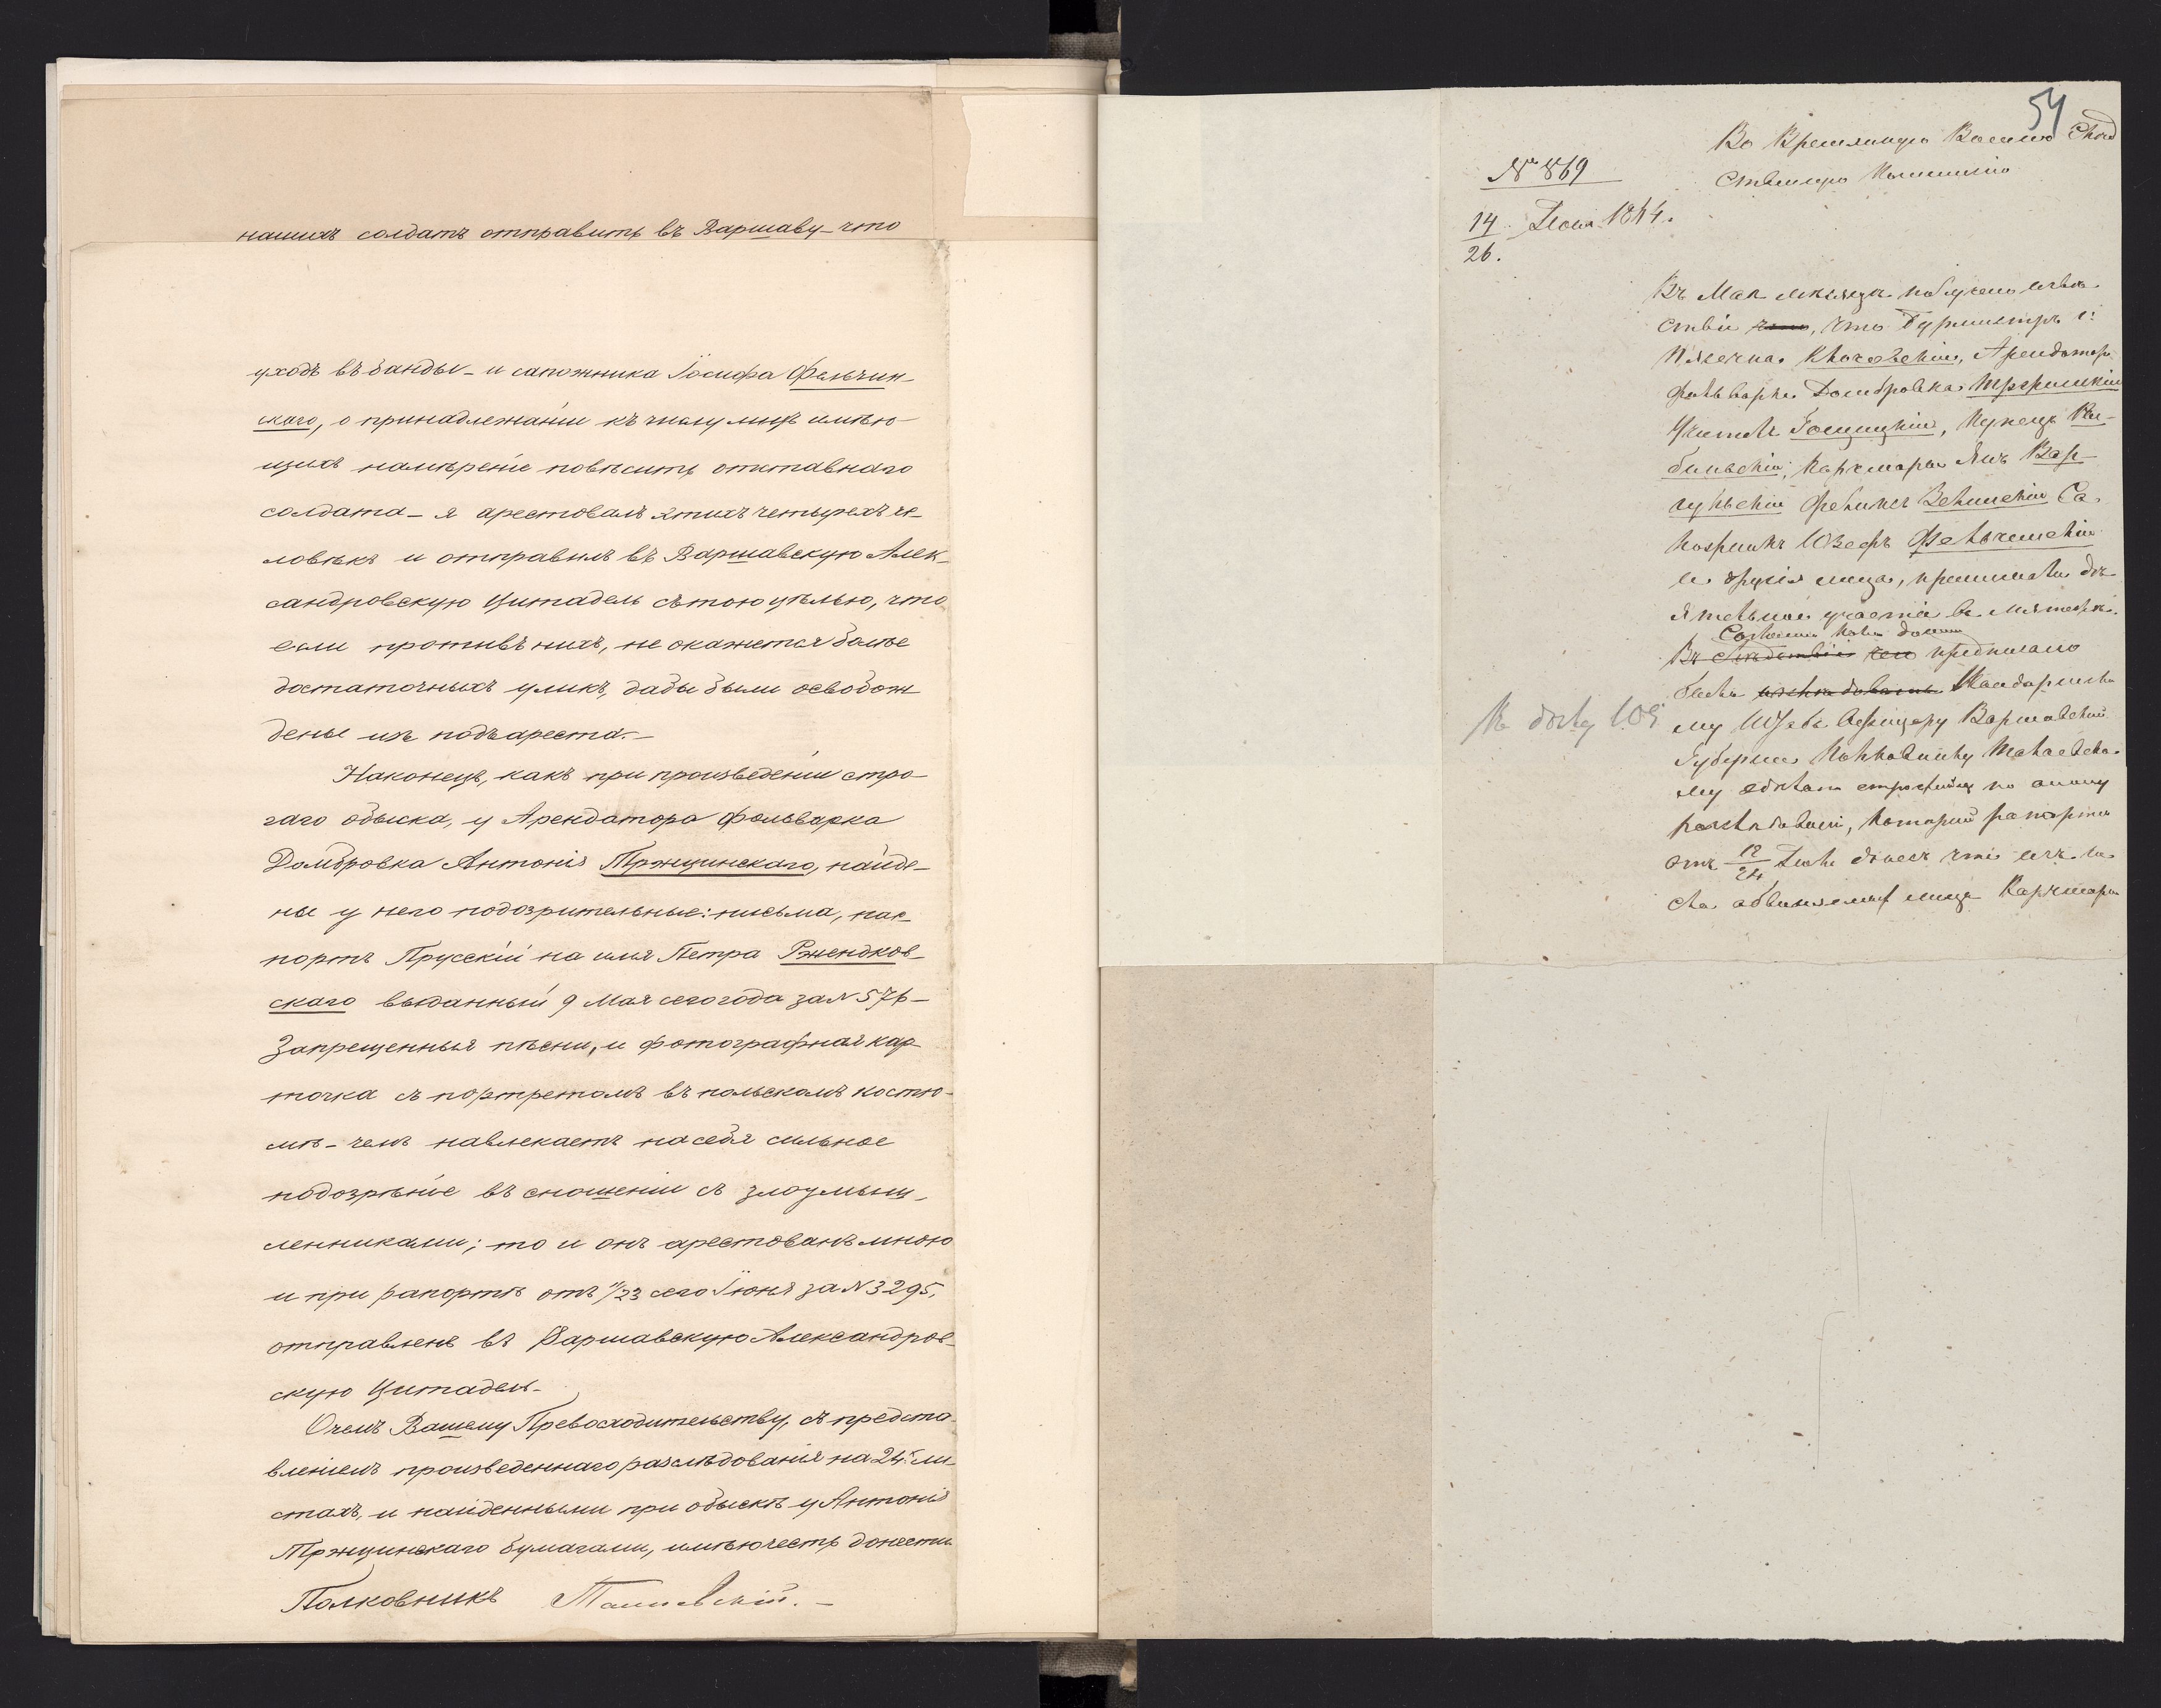 нашихъ солдатъ отправить въ Варшаву - что
уходъ въ банды - и сапожника Іосифа Фельчин-
скаго, о принадлежаніи къ числу лицъ имѣю-
щихъ намѣреніе повѣсить отставнаго
солдата - я арестовалъ этихъ четырехъ че-
ловѣкъ и отправилъ въ Варшавскую Алек-
сандровскую Цитадель съ тою цѣлью, что
если противъ нихъ, не окажется болѣе
достаточныхъ уликъ, дабы были освобож
дены изъ подъ ареста. -
Наконецъ, какъ при произведеніи стро-
гаго обыска, у Арендатора фольварка
Домбровка Антонія Тржцинскаго, найде-
ны у него подозрительные: письма, пас-
портъ Прусскій на имя Петра Ржендков-
скаго выданный 9 Мая сего года за N 576 -
Запрещенныя пѣсни, и фотографная кар-
точка съ портретомъ въ польскомъ костю-
мѣ - чемъ навлекаетъ на себя сильное
подозрѣніе въ сношеніи съ злоумыш-
ленниками; то и онъ арестованъ мною
и при рапортѣ отъ 11/23 сего Іюня за N 3295,
отправленъ въ Варшавскую Александров-
скую Цитадель -
О чемъ Вашему Превосходительству, съ предста-
вленіемъ произведеннаго разслѣдованія на 24 ли-
стахъ, и найденными при обыскѣ у Антонія
Тржцинскаго бумагами, имѣю честь донести
Полковникъ
54
Во Временную Военно Слѣд
ственную Коммисію
№ 869
14/26. Іюня 1864.
Въ Маѣ мѣсяцѣ получено извѣ-
стіе, что Бурмистръ г:
Арендаторъ
фольварка Домбровка Тржцинскій
Учитель Купецъ
Карчмарь Янъ
Феликсъ Са-
пожникъ Юзефъ Фельчинскій
и другія лица, принимали дѣ-
ятельное участіе въ мятежѣ.
Въ предписано
было Жандармско
му Штабъ Офицеру Варшавской
Губерніи Полковнику
му сдѣлать по оному
разслѣдованіе, который рапортомъ
отъ 12/24 Іюня донесъ что изъ чи
сла обвиняемыхъ лицъ Карчмарь